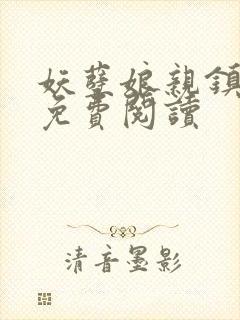 妖孽娘親鎮
免費閱讀
清音墨影